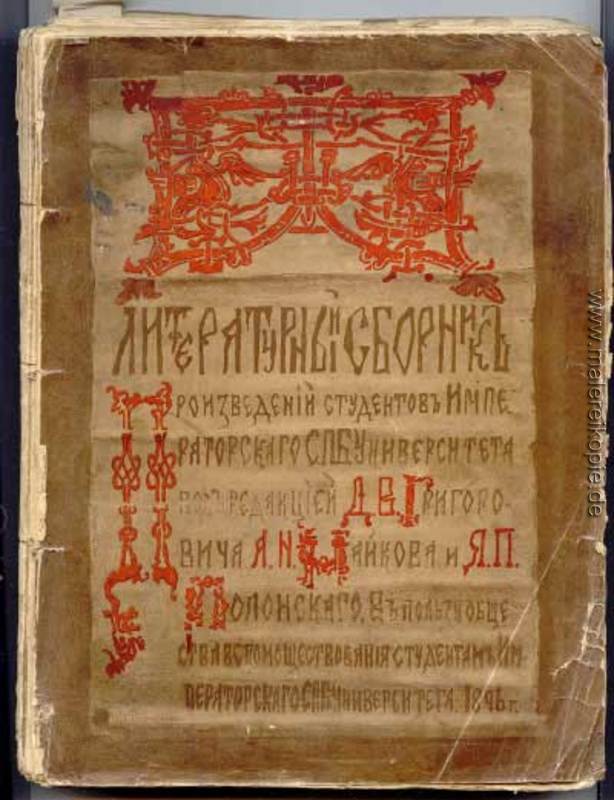 ЛИТЕРАТУРНЫЙ СБОРНИКЪ
ПРОИЗВЕДЕНІЙ СТУДЕНТОВЪ ИМПЕ
РАТОРСКАГО СПБ УНИВЕРСИТЕТА
ПОДЪ РЕДАКЦІЕЙ Д.В. ГРИГОРО-
ВИЧА А.Н. МАЙКОВА И Я.П.
ПОЛОНСКАГО. ВЪ ПОЛЬЗУ ОБЩЕ
СТВА ВСПОМОЩЕСТВОВАНІЯ СТУДЕНТАМЪ ИМ-
ПЕРАТОРСКАГО СПБ УНИВЕРСИТЕТА. 1896 г.
www.malereikopie.de